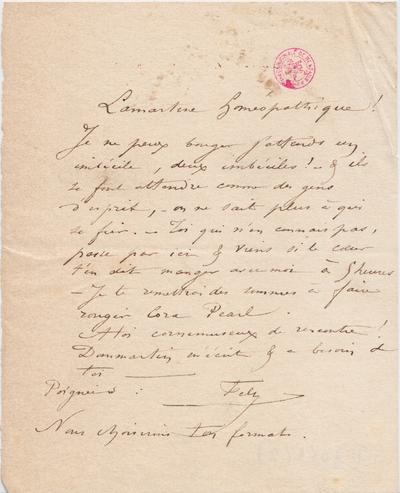 Lamartine homéopathique !
Je ne peux bouger j'attends un
imbécile, deux imbéciles ! - & ils
se font attendre comme des gens
d'esprit, - on ne sait plus à qui
se fier. - Toi qui n'en connais pas,
passe par ici & viens si le cœur
t'en dit manger avec moi à 5 heures
- Je te remettrai des sommes à faire
rougir Cora Pearl.
Hoi cornemuseux de rencontre !
Dommartin m'écrit & a besoin de
toi
Poignées :
Fély
Nous choisirons les formats.